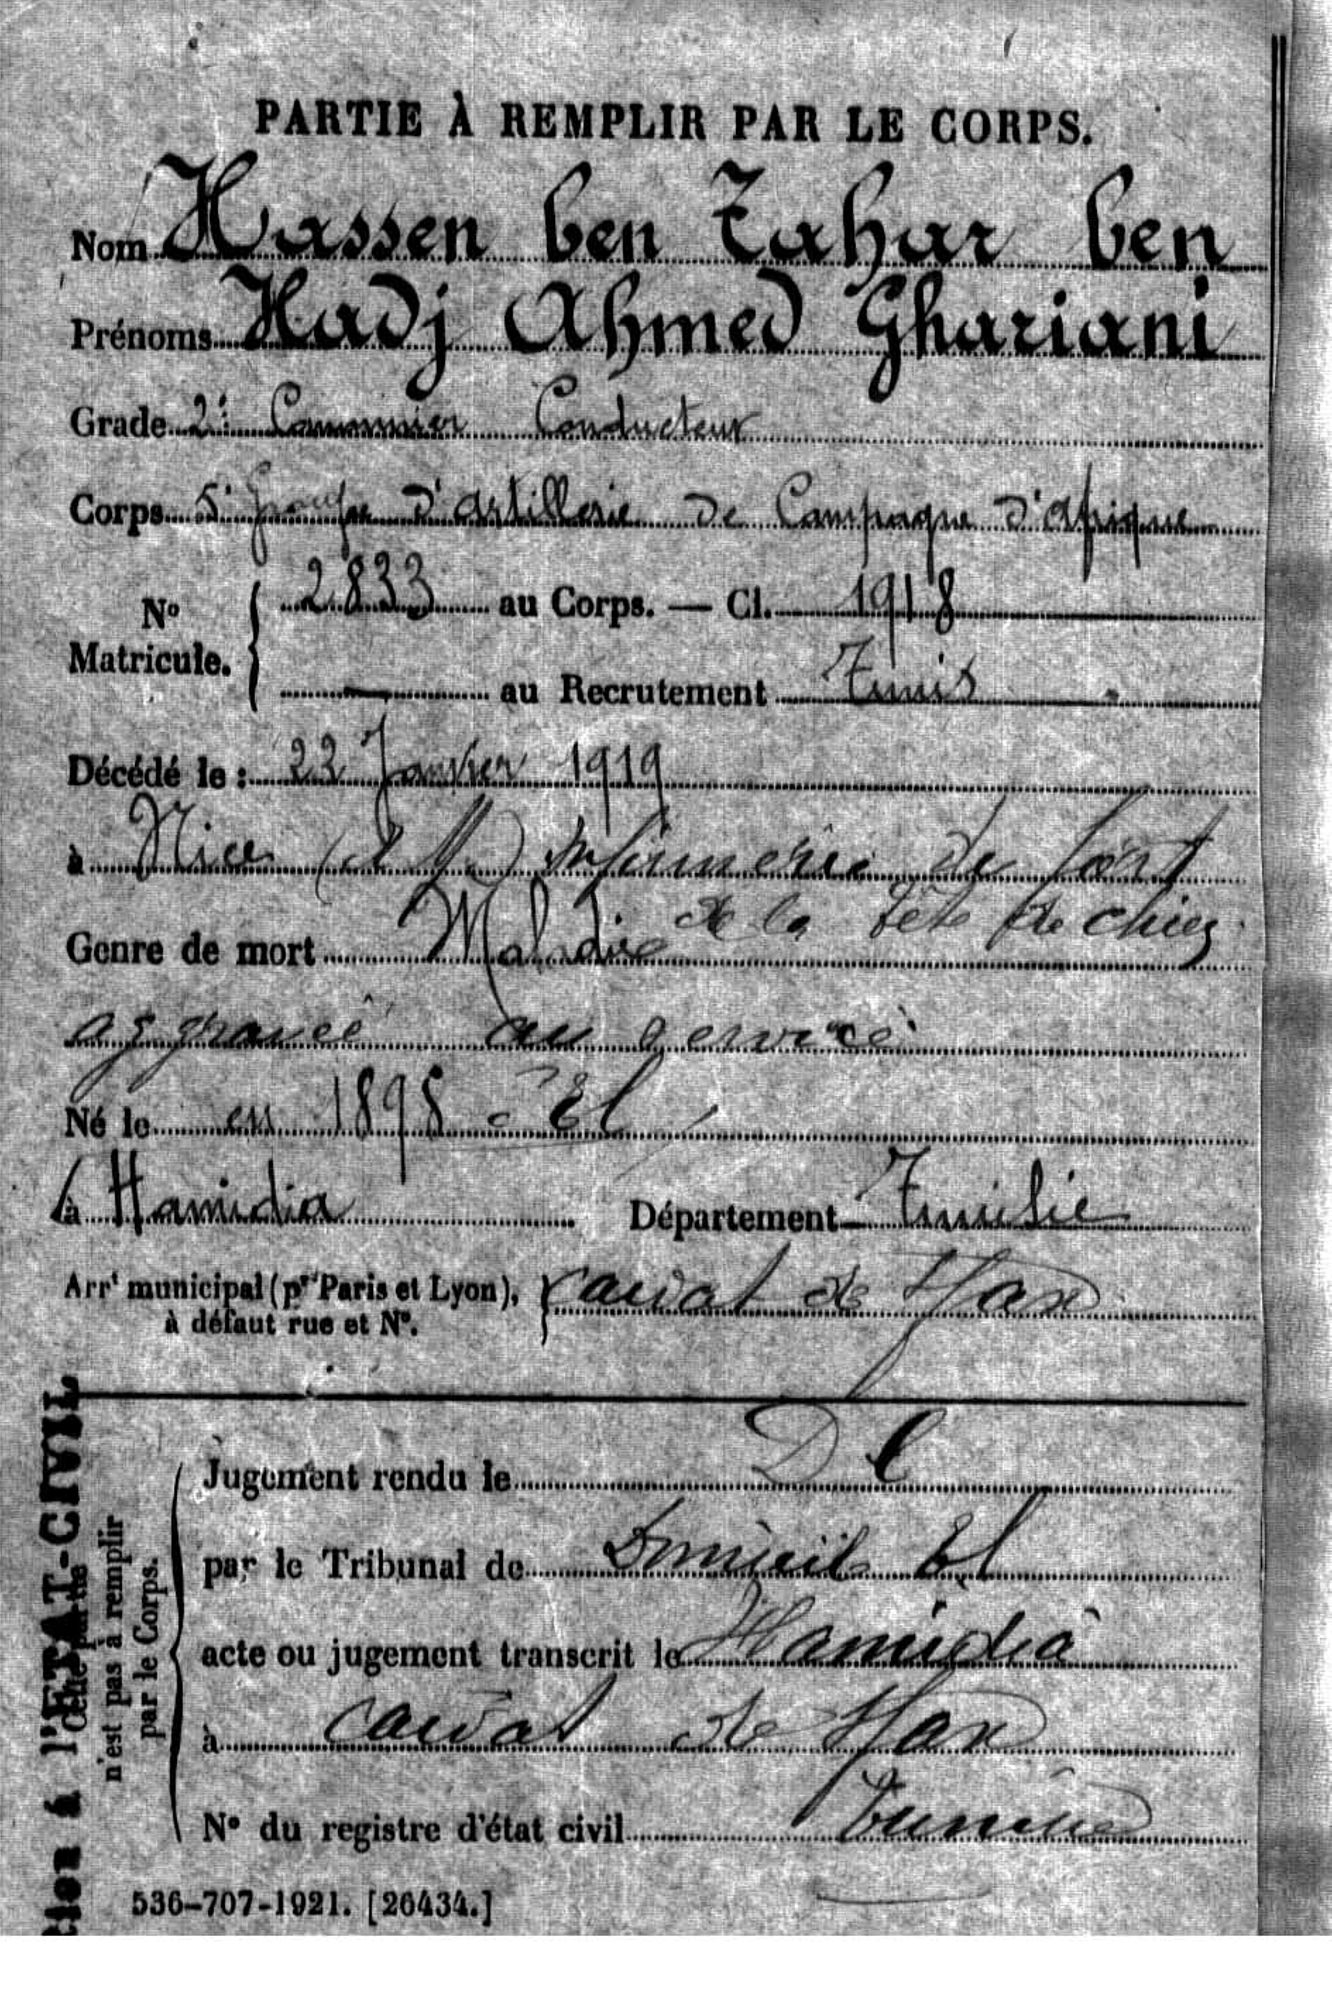 PARTIE À REMPLIR PAR LE CORPS.
Nom Hassen ben Tahar ben
Prénoms Hadj Ahmed Ghariani
Grade 2e Canonnier Conducteur
Corps 5e groupe d'artillerie de Campagne d'afrique
No Matricule. { 2833 au Corps. — Cl. 1918
— au Recrutement Tunis
Décédé le : 22 Janvier 1919
à Nice (A M) Infirmerie de fort
de la Tête de chien
Genre de mort Maladie
aggravée au service
Né le en 1898 El
à Hamidia Département Tunisie
Arrt municipal (pr Paris et Lyon), à défaut rue et No. } caidat de Sfax
Jugement rendu le D C
par le Tribunal de Domicile El
acte ou jugement transcrit le Hamidia
à caidat de Sfax
No du registre d'état civil Tunisie
Cette partie
n'est pas à remplir
par le Corps.
à l'ETAT-CIVIL
536-707-1921. [26434.]